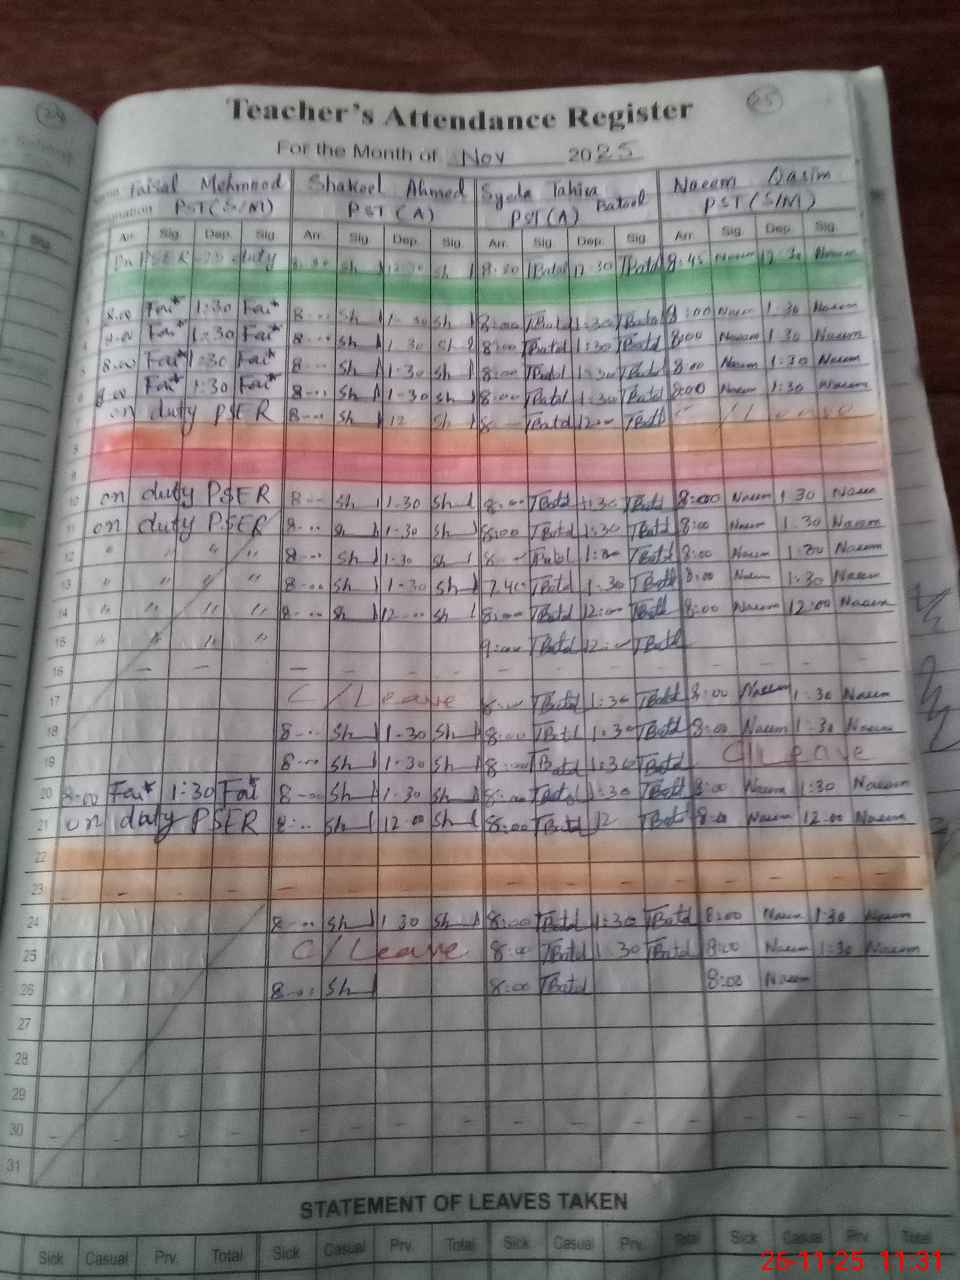 24
25
Teacher's Attendance Register
For the Month of Nov 2025
Faisal Mehmood Shakeel Ahmed Syeda Tahira Batool Naeem Qasim
PST(S/M) PST(A) PST(A) PST(S/M)
Arr. Sig. Dep. Sig. Arr. Sig. Dep. Sig. Arr. Sig Dep. Sig Arr. Sig. Dep. Sig.
on PSER duty Sh Sh 8:30 TBatol 12:30 TBatol 8:45 Naeem 12 30 Naeem
8:00 Fai* 1:30 Fai* 8--- Sh 1-30 Sh 8:00 TBatol 1:30 TBatol 8:00 Naeem 1 30 Naeem
8:00 Fai* 1:30 Fai* 8--- Sh 1 30 Sh 8:00 TBatol 1:30 TBatol 8:00 Naeem 1 30 Naeem
5 8:00 Fai* 1:30 Fai* 8--- Sh 1-30 Sh 8:00 TBatol 1:30 TBatol 8:00 Naeem 1:30 Naeem
6 8:00 Fai* 1:30 Fai* 8--- Sh 1-30 Sh 8:00 TBatol 1:30 TBatol 8:00 Naeem 1:30 Naeem
7 on duty PSER 8--- Sh 12 Sh 8 TBatol 12:00 TBatol C/Leave
8
9
10 on duty PSER 8--- Sh 1-30 Sh 8:00 TBatol 1:30 TBatol 8:00 Naeem 1 30 Naeem
11 on duty PSER 8--- Sh 1-30 Sh 8:00 TBatol 1:30 TBatol 8:00 Naeem 1.30 Naeem
12 " " " " 8--- Sh 1-30 Sh 8 TBatol 1:30 TBatol 8:00 Naeem 1:30 Naeem
13 " " " " 8--- Sh 1-30 Sh 7.40 TBatol 1-30 TBatol 8:00 Naeem 1:30 Naeem
14 " " " " 8--- Sh 12--- Sh 8:00 TBatol 12:00 TBatol 8:00 Naeem 12:00 Naeem
15 " " " " 9:00 TBatol 12:00 TBatol
16 – – – – – – – – – – – –
17 C/Leave 8:00 TBatol 1:30 TBatol 8:00 Naeem 1:30 Naeem
18 8--- Sh 1-30 Sh 8:00 TBatol 1:30 TBatol 8:00 Naeem 1:30 Naeem
19 8--- Sh 1-30 Sh 8:00 TBatol 1:30 TBatol C/Leave
20 8:00 Fai* 1:30 Fai* 8---- Sh 1-30 Sh 8:00 TBatol 1:30 TBatol 8:00 Naeem 1:30 Naeem
21 on duty PSER 8--- Sh 12 00 Sh 8:00 TBatol 12 TBatol 8:00 Naeem 12.00 Naeem
22
23 – – – – – – – – – – – – –
24 8--- Sh 1 30 Sh 8:00 TBatol 1:30 TBatol 8:00 Naeem 1:30 Naeem
25 C/Leave 8:00 TBatol 1 30 TBatol 8:00 Naeem 1:30 Naeem
26 8--- Sh 8:00 TBatol 8:00 Naeem
27
28
29
30 – – – – – – – – – – – – – – – –
31
STATEMENT OF LEAVES TAKEN
Sick Casual Prv. Total Sick Casual Prv. Total Sick Casual Prv. Total Sick Casual Prv. Total
26-11-25 11:31